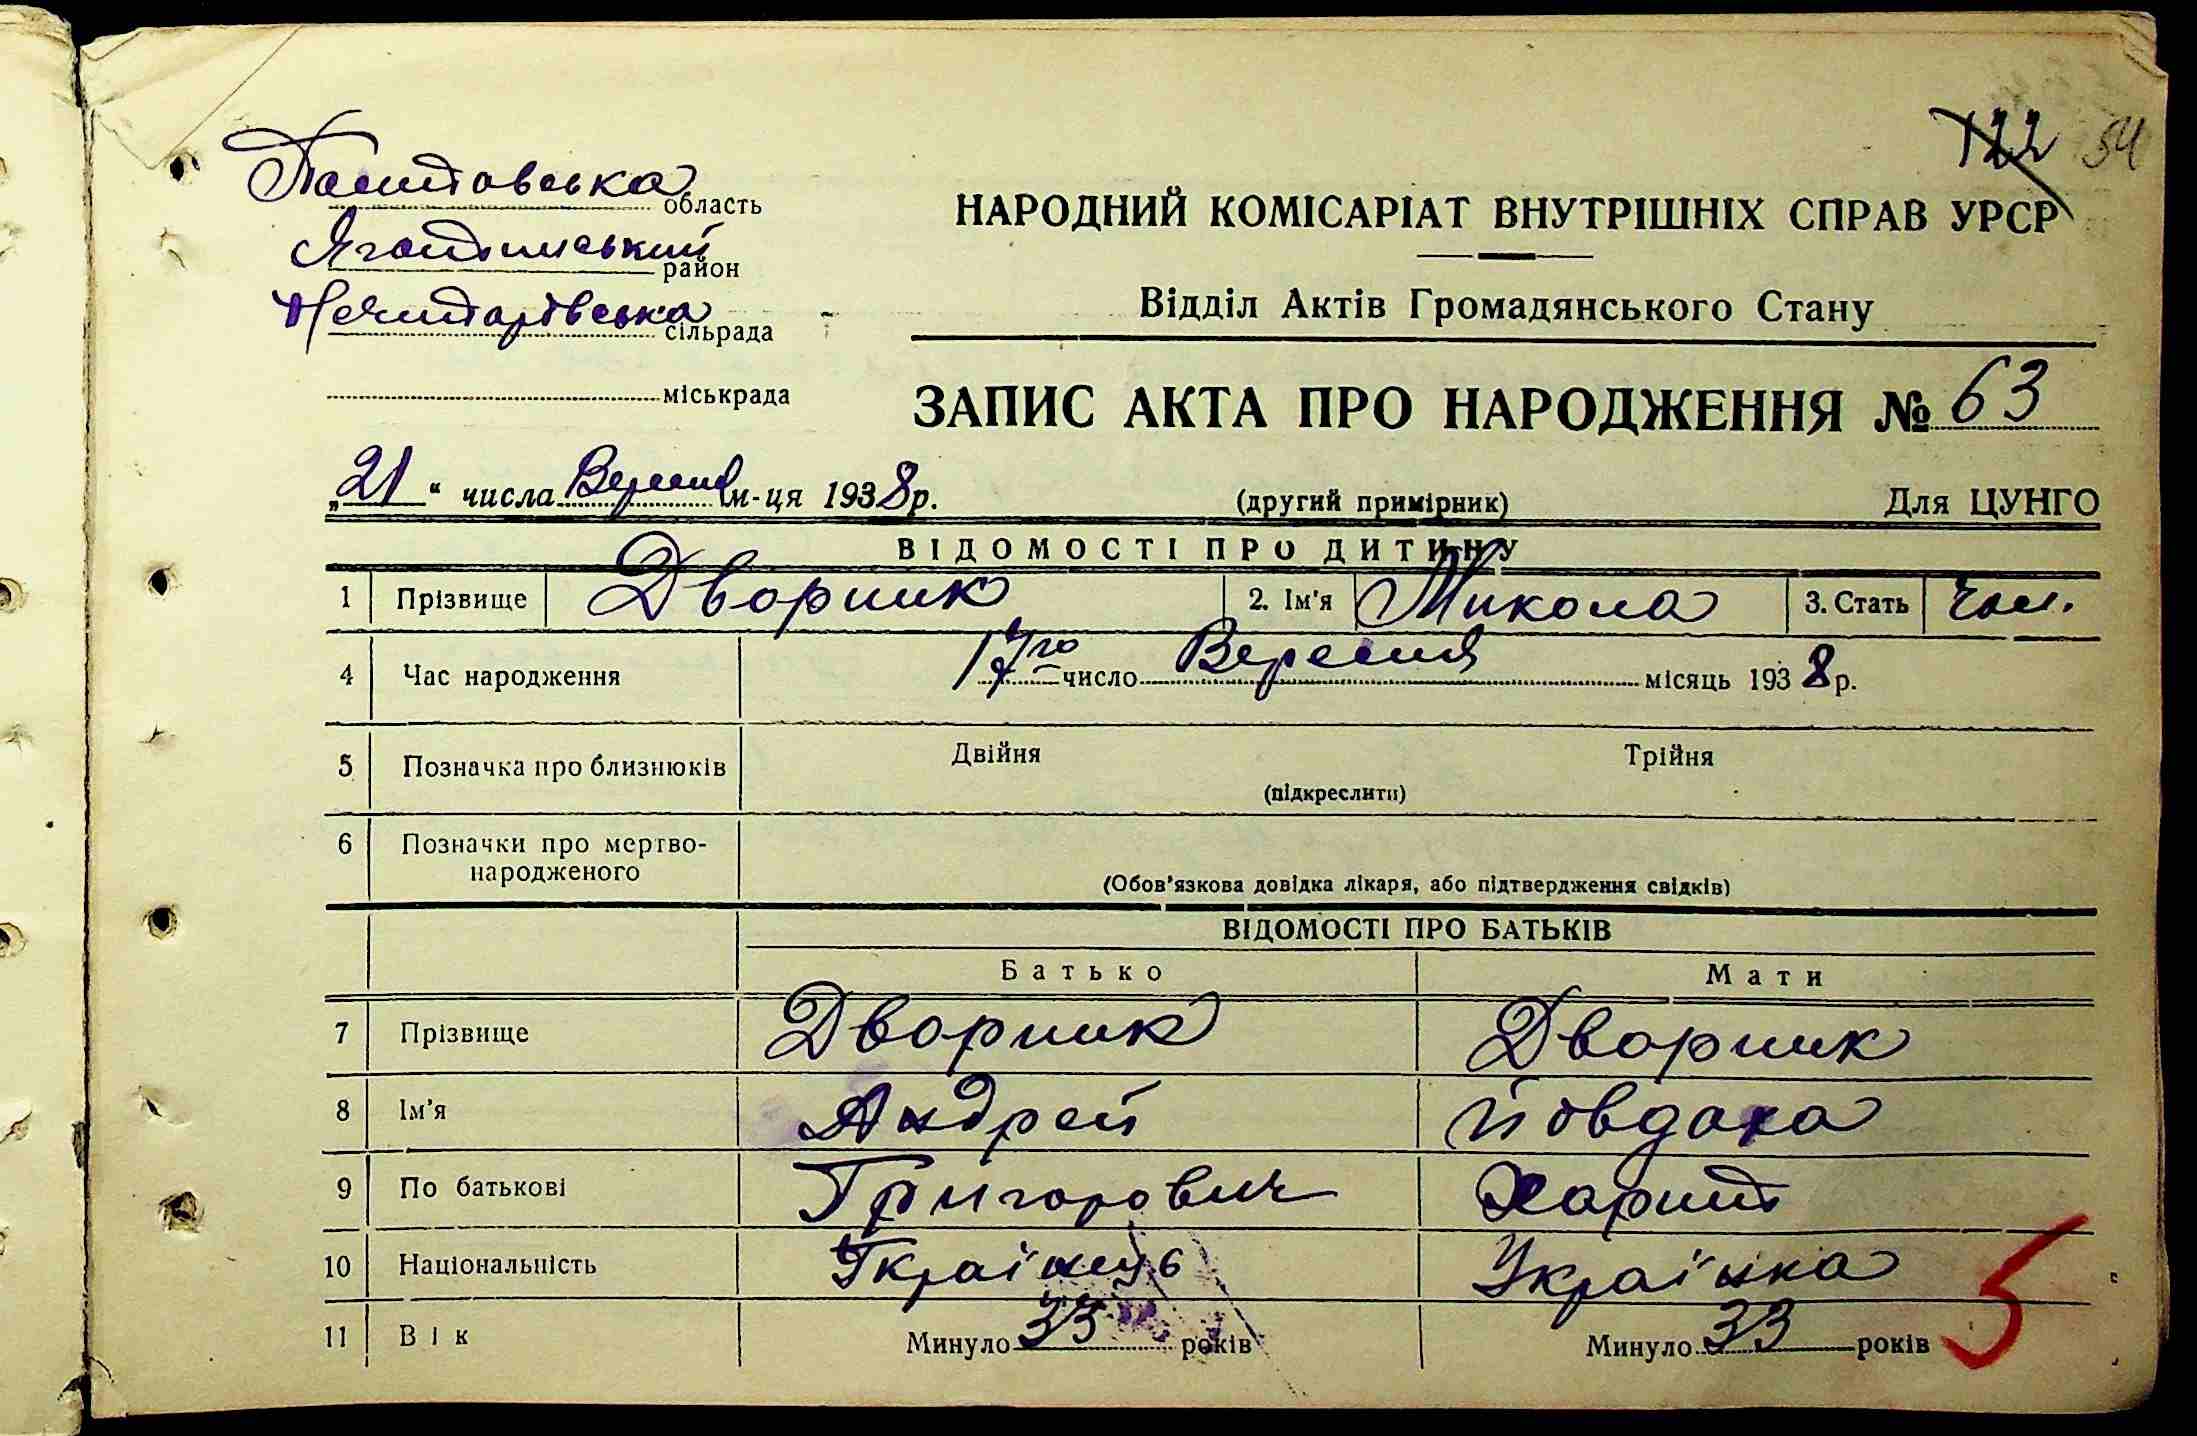 122 54
Полтавська область
Яготинський район
сільрада
міськрада
НАРОДНИЙ КОМІСАРІАТ ВНУТРІШНІХ СПРАВ УРСР
Відділ Актів Громадянського Стану
ЗАПИС АКТА ПРО НАРОДЖЕННЯ № 63
„21“ числа Вересня м-ця 1938 р. (другий примірник) Для ЦУНГО
ВІДОМОСТІ ПРО ДИТИНУ
1 Прізвище Дворник 2. Ім'я Микола 3. Стать Чол.
4 Час народження 17го число Вересня місяць 1938 р.
5 Позначка про близнюків Двійня Трійня
(підкреслити)
6 Позначки про мертво-
народженого
(Обов'язкова довідка лікаря, або підтвердження свідків)
ВІДОМОСТІ ПРО БАТЬКІВ
Батько Мати
7 Прізвище Дворник Дворник
8 Ім'я Андрей Йовдаха
9 По батькові Григорович Харит
10 Національність Українець Українка
11 Вік Минуло 33 років Минуло 33 років
5